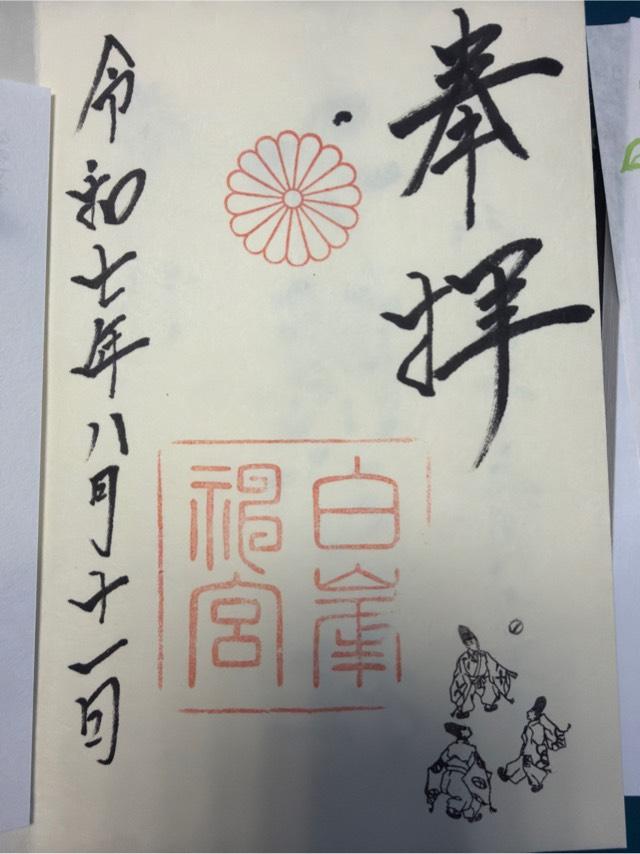 奉拝
白峯
神宮
令和七年八月十一日